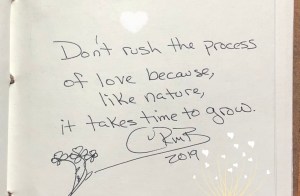 Don't rush the process
of love because,
like nature,
it takes time to grow.
RmB
2019